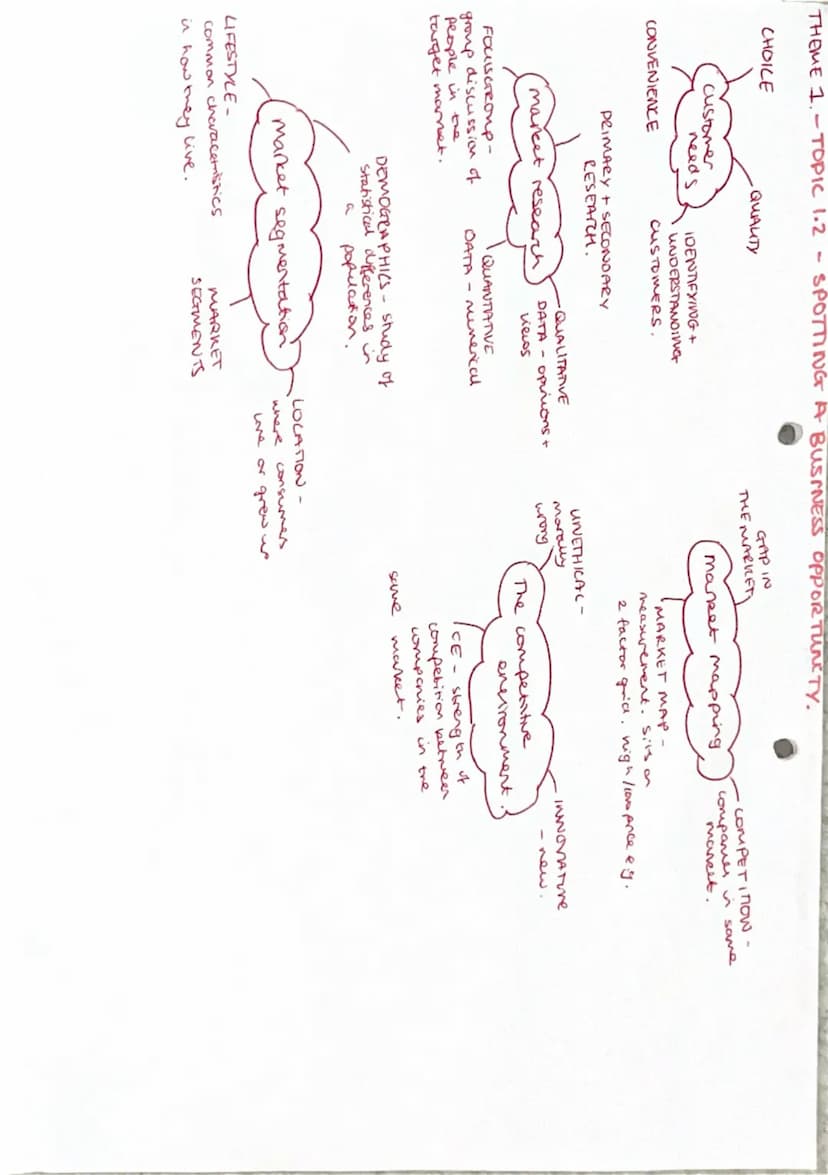 THEME 1. - TOPIC 1.2 - SPOTTING A BUSINESS OPPORTUNITY.
CHOICE
QUALITY
customer
needs
CONVENIENCE
IDENTIFYING +
UNDERSTANDING
CUSTOMERS.
GAP IN
THE MARKET
market mapping
COMPETITION -
companies in same
market.
MARKET MAP -
measurement. sits on
2 factor grid. high/low price e.g.
PRIMARY + SECONDARY
RESEARCH.
market research
QUALITATIVE
DATA - opinions +
views
FOCUS GROUP -
group discussion of
people in the
target market.
QUANTATIVE
DATA - numerical
UNETHICAL -
morally
wrong
The competitive
environment.
INNOVATIVE
- new.
CE - strength of
competition between
companies in the
same market.
DEMOGRAPHICS - study of
statistical differences in
a population.
market segmentation
LOCATION -
where consumers
live or grew up
LIFESTYLE -
common characteristics
in how they live.
MARKET
SEGMENTS